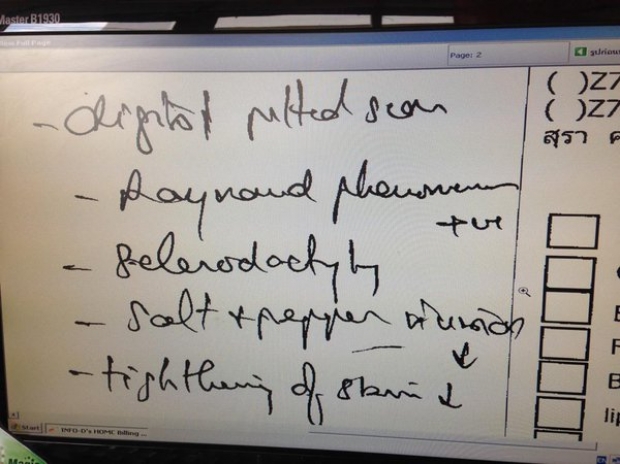 Master B1930
View Full Page
Page: 2
- digital pitted scar
( )Z7
( )Z7
สุรา
- Raynaud phenomenon
+ve
- Sclerodactyly
- salt & pepper
↓
- tightening of skin ↓
Start
INFO-D's HOME Billing ...